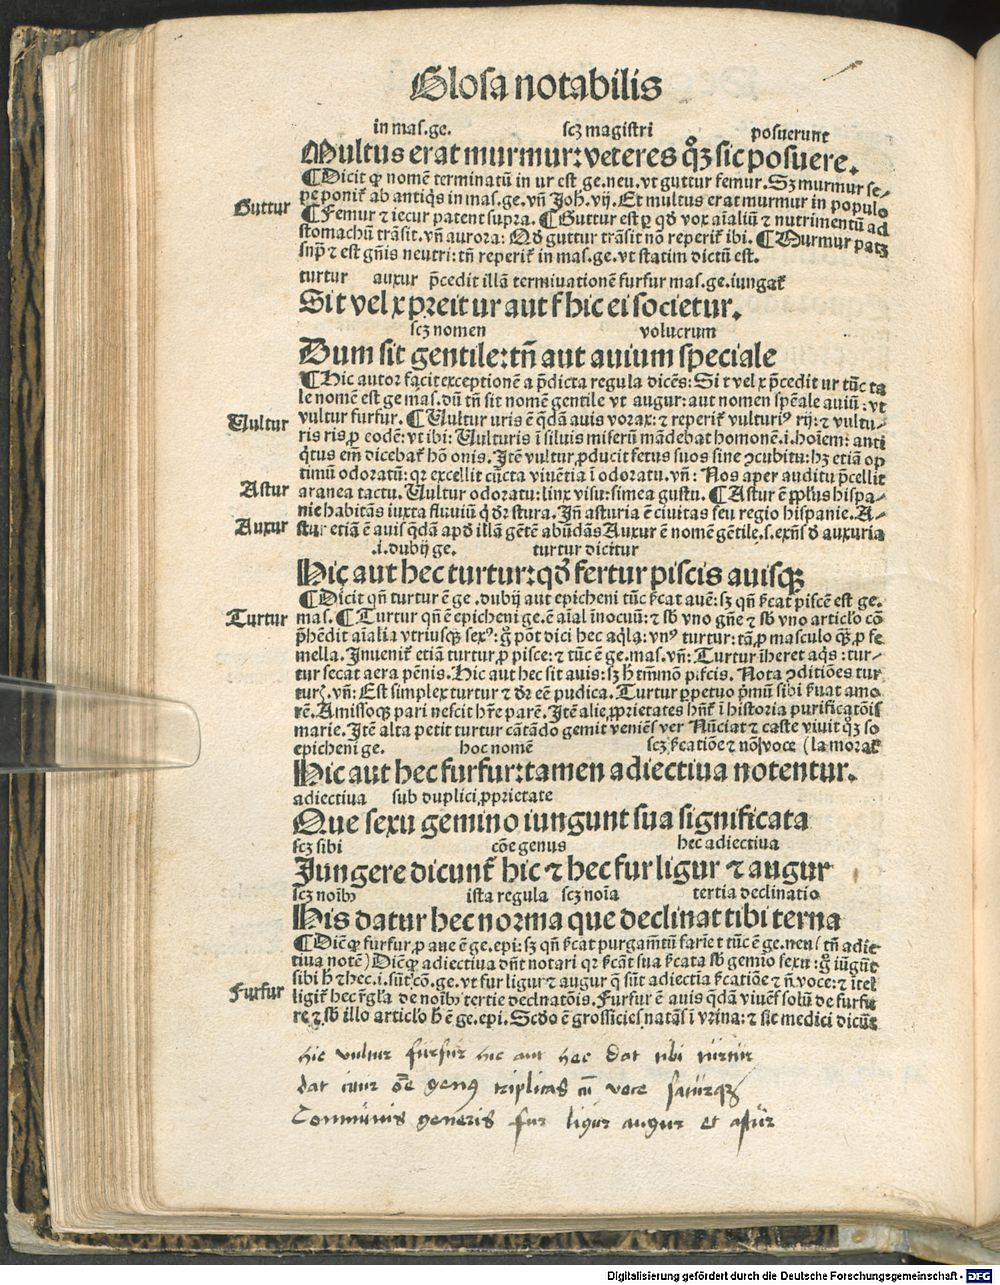 Glosa notabilis
in mas.ge. scꝫ magistri posuerunt
Multus erat murmur: veteres qꝫ sic posuere.
¶Dicit ꝙ nomē terminatū in ur est ge.neu. vt guttur femur. Sꝫ murmur se-
pe ponit᷑ ab antiq̄s in mas.ge. vn̄ Joh. vij. Et multus erat murmur in populo
Guttur
¶Femur ⁊ iecur patent supra. ¶Guttur est ꝑ qd̄ vox aīaliū ⁊ nutrimentū ad
stomachū trāsit. vn̄ aurora: Qd̄ guttur trāsit nō reperit᷑ ibi. ¶Murmur patꝫ
snp̄ ⁊ est gn̄is neutri: tn̄ reperit᷑ in mas.ge. vt statim dictū est.
turtur auxur p̄cedit illā termiuationē furfur mas.ge. iungat᷑
Sit vel x preit ur aut f hic ei societur.
scꝫ nomen volucrum
Dum sit gentile: tn̄ aut auium speciale
¶Hic autor facit exceptionē a p̄dicta regula dicēs: Si t vel x p̄cedit ur tūc ta
le nomē est ge mas. dū tn̄ sit nomē gentile vt augur: aut nomen spēale auiū: vt
Uultur
vultur furfur. ¶Uultur uris ē q̄dā auis vorax: ⁊ reperit᷑ vulturiꝰ rij: ⁊ vultu-
ris ris ꝓ eodē: vt ibi: Uulturis ī siluis miserū mādebat homonē. i. hoīem: anti
q̄tus em̄ dicebat᷑ hō onis. Itē vultur ꝓducit fetus suos sine ꝯcubitu: hꝫ etiā op
timū odoratū: qr excellit cūcta viuētia ī odoratu. vn̄: Nos aper auditu p̄cellit
Astur
aranea tactu. Uultur odoratu: linx visu: simea gustu. ¶Astur ē pp̄lus hispa-
nie habitās iuxta fluuiū q̄ dr̄ stura. In̄ asturia ē ciuitas seu regio hispanie. A-
Auxur
stur etiā ē auis q̄dā apd̄ illā gētē abūdās Auxur ē nomē gētile. s. exn̄s d̄ auxuria
.i. dubij ge. turtur dicitur
Hic aut hec turtur: qd̄ fertur piscis auisqꝫ
¶Dicit qn̄ turtur ē ge. dubij aut epicheni tūc sc̄at auē: sꝫ qn̄ sc̄at piscē est ge.
Turtur
mas. ¶Turtur qn̄ ē epicheni ge. ē aīal īnocuū: ⁊ sb̄ vno gn̄e ⁊ sb̄ vno articlo cō
p̄hēdit aīalia vtriusqꝫ sexꝰ: g̊ pōt dici hec aq̄la: vnꝰ turtur: tā ꝓ masculo qꝫ ꝓ fe
mella. Inuenit᷑ etiā turtur ꝓ pisce: ⁊ tūc ē ge. mas. vn̄: Turtur īheret aq̄s: tur-
tur secat aera pēnis. Hic aut hec sit auis: sꝫ h̄ tm̄mō piscis. Nota ꝯditiōes tur
turꝭ. vn̄: Est simplex turtur ⁊ dr̄ eē pudica. Turtur ꝑpetuo pmū sibi s̄uat amo
rē. Amissoqꝫ pari nescit hr̄e parē. Itē alie ꝓprietates hn̄t ī historia purificatōis
marie. Itē alta petit turtur cātādo gemit veniēs ver Nūciat ⁊ caste viuit qꝫ so
epicheni ge. hoc nomē scꝫ sc̄atiōe ⁊ nō voce (la morat᷑
Hic aut hec furfur: tamen adiectiua notentur.
adiectiua sub duplici ꝓprietate
Que sexu gemino iungunt sua significata
scꝫ sibi cōe genus hec adiectiua
Jungere dicunt᷑ hic ⁊ hec fur ligur ⁊ augur
scꝫ noīb᷒ ista regula scꝫ noīa tertia declinatio
His datur hec norma que declinat tibi terna
¶Diēꝙ furfur ꝓ aue ē ge. epi: sꝫ qn̄ sc̄at purgamtū farie t tūc ē ge. neu (tn̄ adiec
tiua notē) Diēꝙ adiectiua dn̄t notari qr sc̄āt sua sc̄ata sb̄ gemio sexu: g̊ iūgūt
sibi h̄ ⁊ hec. i. sūt cō. ge. vt fur ligur ⁊ augur q̄ sūt adiectia sc̄atiōe ⁊ n̄ voce: ⁊ ītel
Furfur
ligit᷑ hec rḡla de noīb᷒ tertie declnatōis. Furfur ē auis q̄dā viuēs solū de furfu
re ⁊ sb̄ illo articlo h̄ ē ge. epi. Scd̄o ē grossicies natās ī vrina: ⁊ sic medici dicūt
hic vultur furfur hic aut hec dat tibi turtur
dat cuur oē̄ genꝰ triplicas cū voce saturqꝫ
Communis generis fur ligur augur et astur
Digitalisierung gefördert durch die Deutsche Forschungsgemeinschaft - DFG